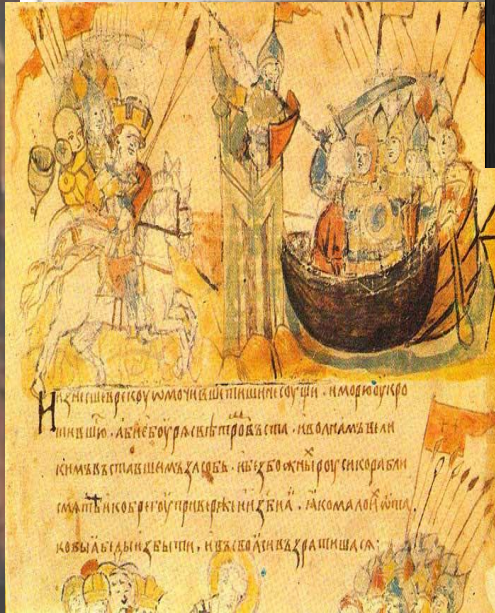 изнесше в рекоу ѡмочивше тишине соущи . и морю оукро
тившюⷭ҇ . абие боурѧ с вѣтромъ въста . и волнамъ вели
кимъ въставшимъ засобь . и безбожныⷯ роуси корабли
смѧте и к берегоу приверже и изби ѧ . ꙗко мало иⷯ ѿ та
ковыѧ беды избыти , и въ своѧси възратишасѧ :